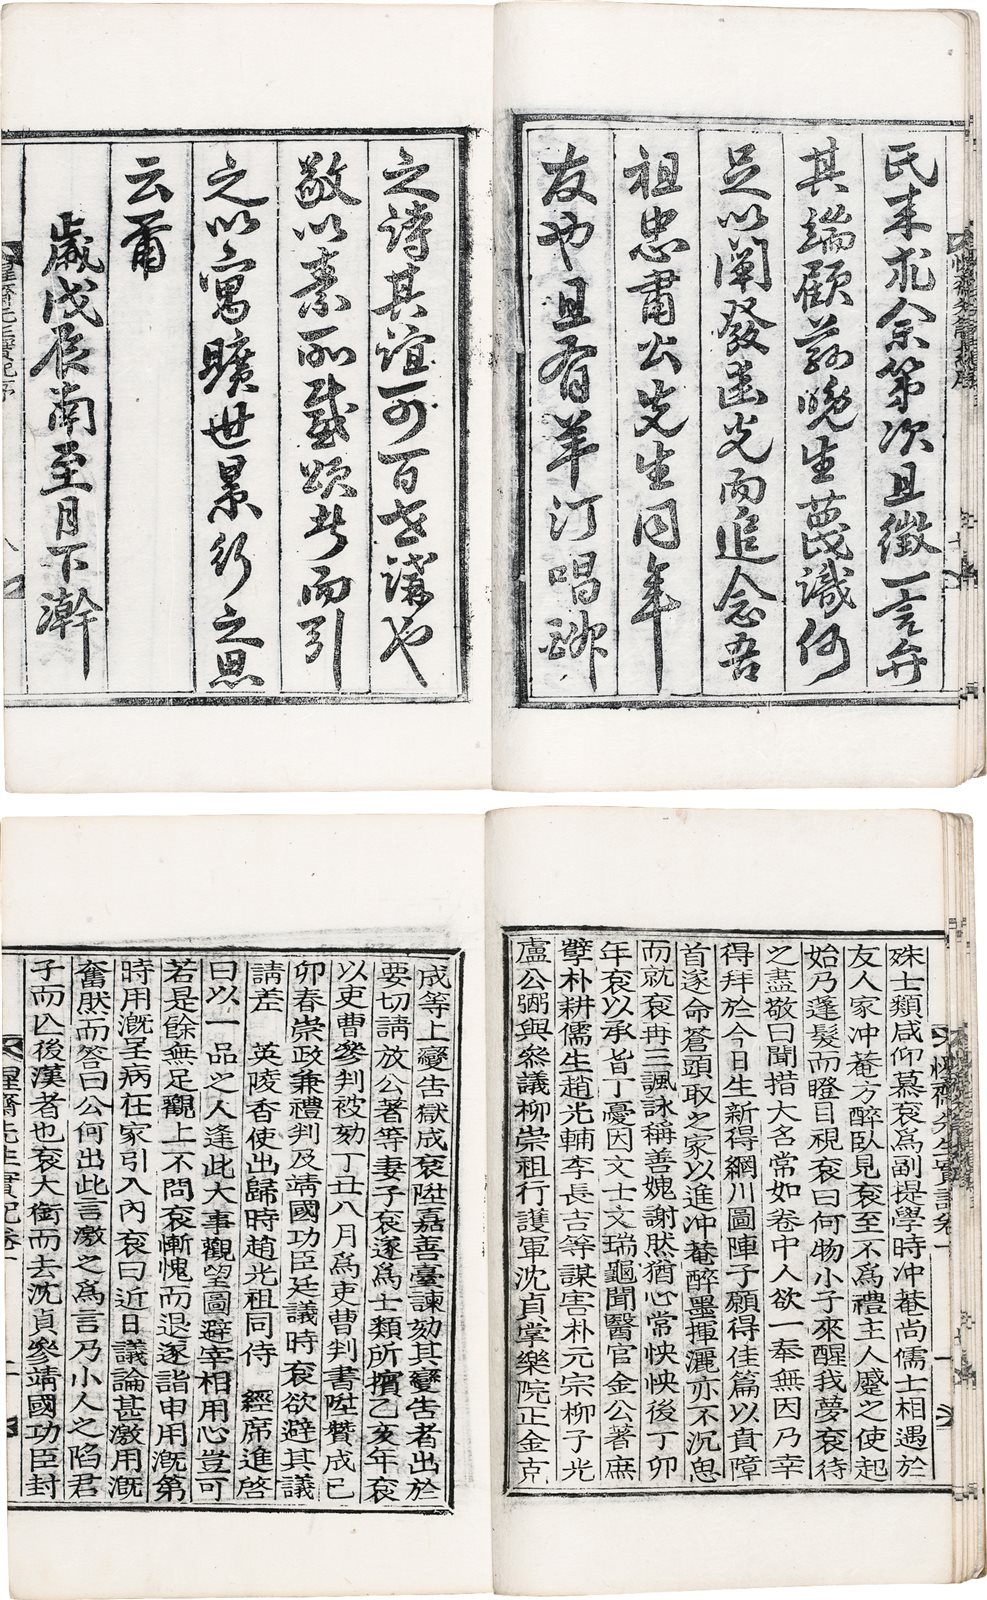 氏來求余第次且徵一言弁
其端顧藐晚生蔑識何
足以闡發幽光而追念吾
祖忠肅公先生同年
友也且有羊汀唱酬
之詩其誼可百世講也
敬以素所感頌者而引
之以寓曠世景行之思
云爾
歲戊辰南至月下澣
殊士類咸仰慕衮爲副提學時冲菴尚儒士相遇於
友人家冲菴方醉臥見衮至不爲禮主人蹙之使起
始乃蓬髮而瞪目視衮曰何物小子來醒我夢衮待
之盡敬曰聞措大名常如卷中人欲一奉無因乃幸
得拜於今日生新得網川圖障子願得佳篇以賁障
首遂命蒼頭取之家以進冲菴醉墨揮灑亦不沉思
而就衮再三諷詠稱善媿謝然猶心常怏怏後丁卯
年衮以承旨丁憂因文士文瑞龜聞醫官金公著庶
孽朴耕儒生趙光輔李長吉等謀害朴元宗柳子光
盧公弼與參議柳崇祖行護軍沈貞掌樂院正金克
成等上變告獄成衮陞嘉善臺諫劾其變告者出於
要切請放公著等妻子衮遂爲士類所擯乙亥年衮
以吏曹參判被劾丁丑八月爲吏曹判書陞贊成己
卯春崇政兼禮判及靖國功臣廷議時衮欲避其議
請差 英陵香使出歸時趙光祖同侍 經席進啓
曰以一品之人逢此大事觀望圖避宰相用心豈可
若是餘無足觀上不問衮慚愧而退遂詣申用漑第
時用漑呈病在家引入內衮曰近日議論甚激用漑
奮然而答曰公何出此言激之爲言乃小人之陷君
子而亾後漢者也衮大銜而去沈貞參靖國功臣封